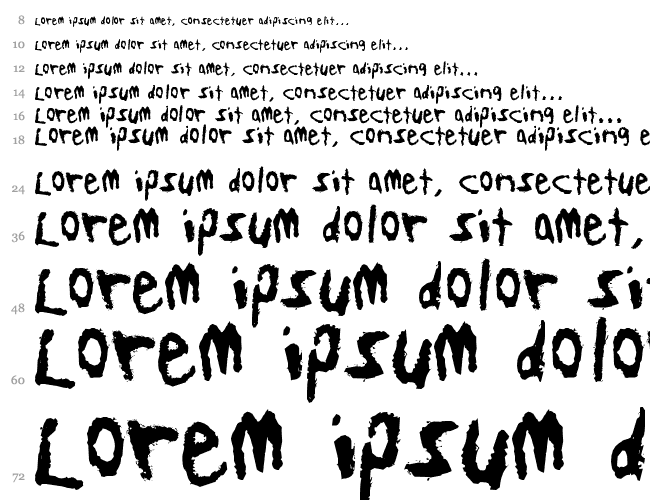 8 Lorem ipsum dolor sit amet, consectetuer adipiscing elit...
10 Lorem ipsum dolor sit amet, consectetuer adipiscing elit...
12 Lorem ipsum dolor sit amet, consectetuer adipiscing elit...
14 Lorem ipsum dolor sit amet, consectetuer adipiscing elit...
16 Lorem ipsum dolor sit amet, consectetuer adipiscing elit...
18 Lorem ipsum dolor sit amet, consectetuer adipiscing e
24 Lorem ipsum dolor sit amet, consectetue
36 Lorem ipsum dolor sit amet,
48 Lorem ipsum dolor si
60 Lorem ipsum dolo
72 Lorem ipsum d